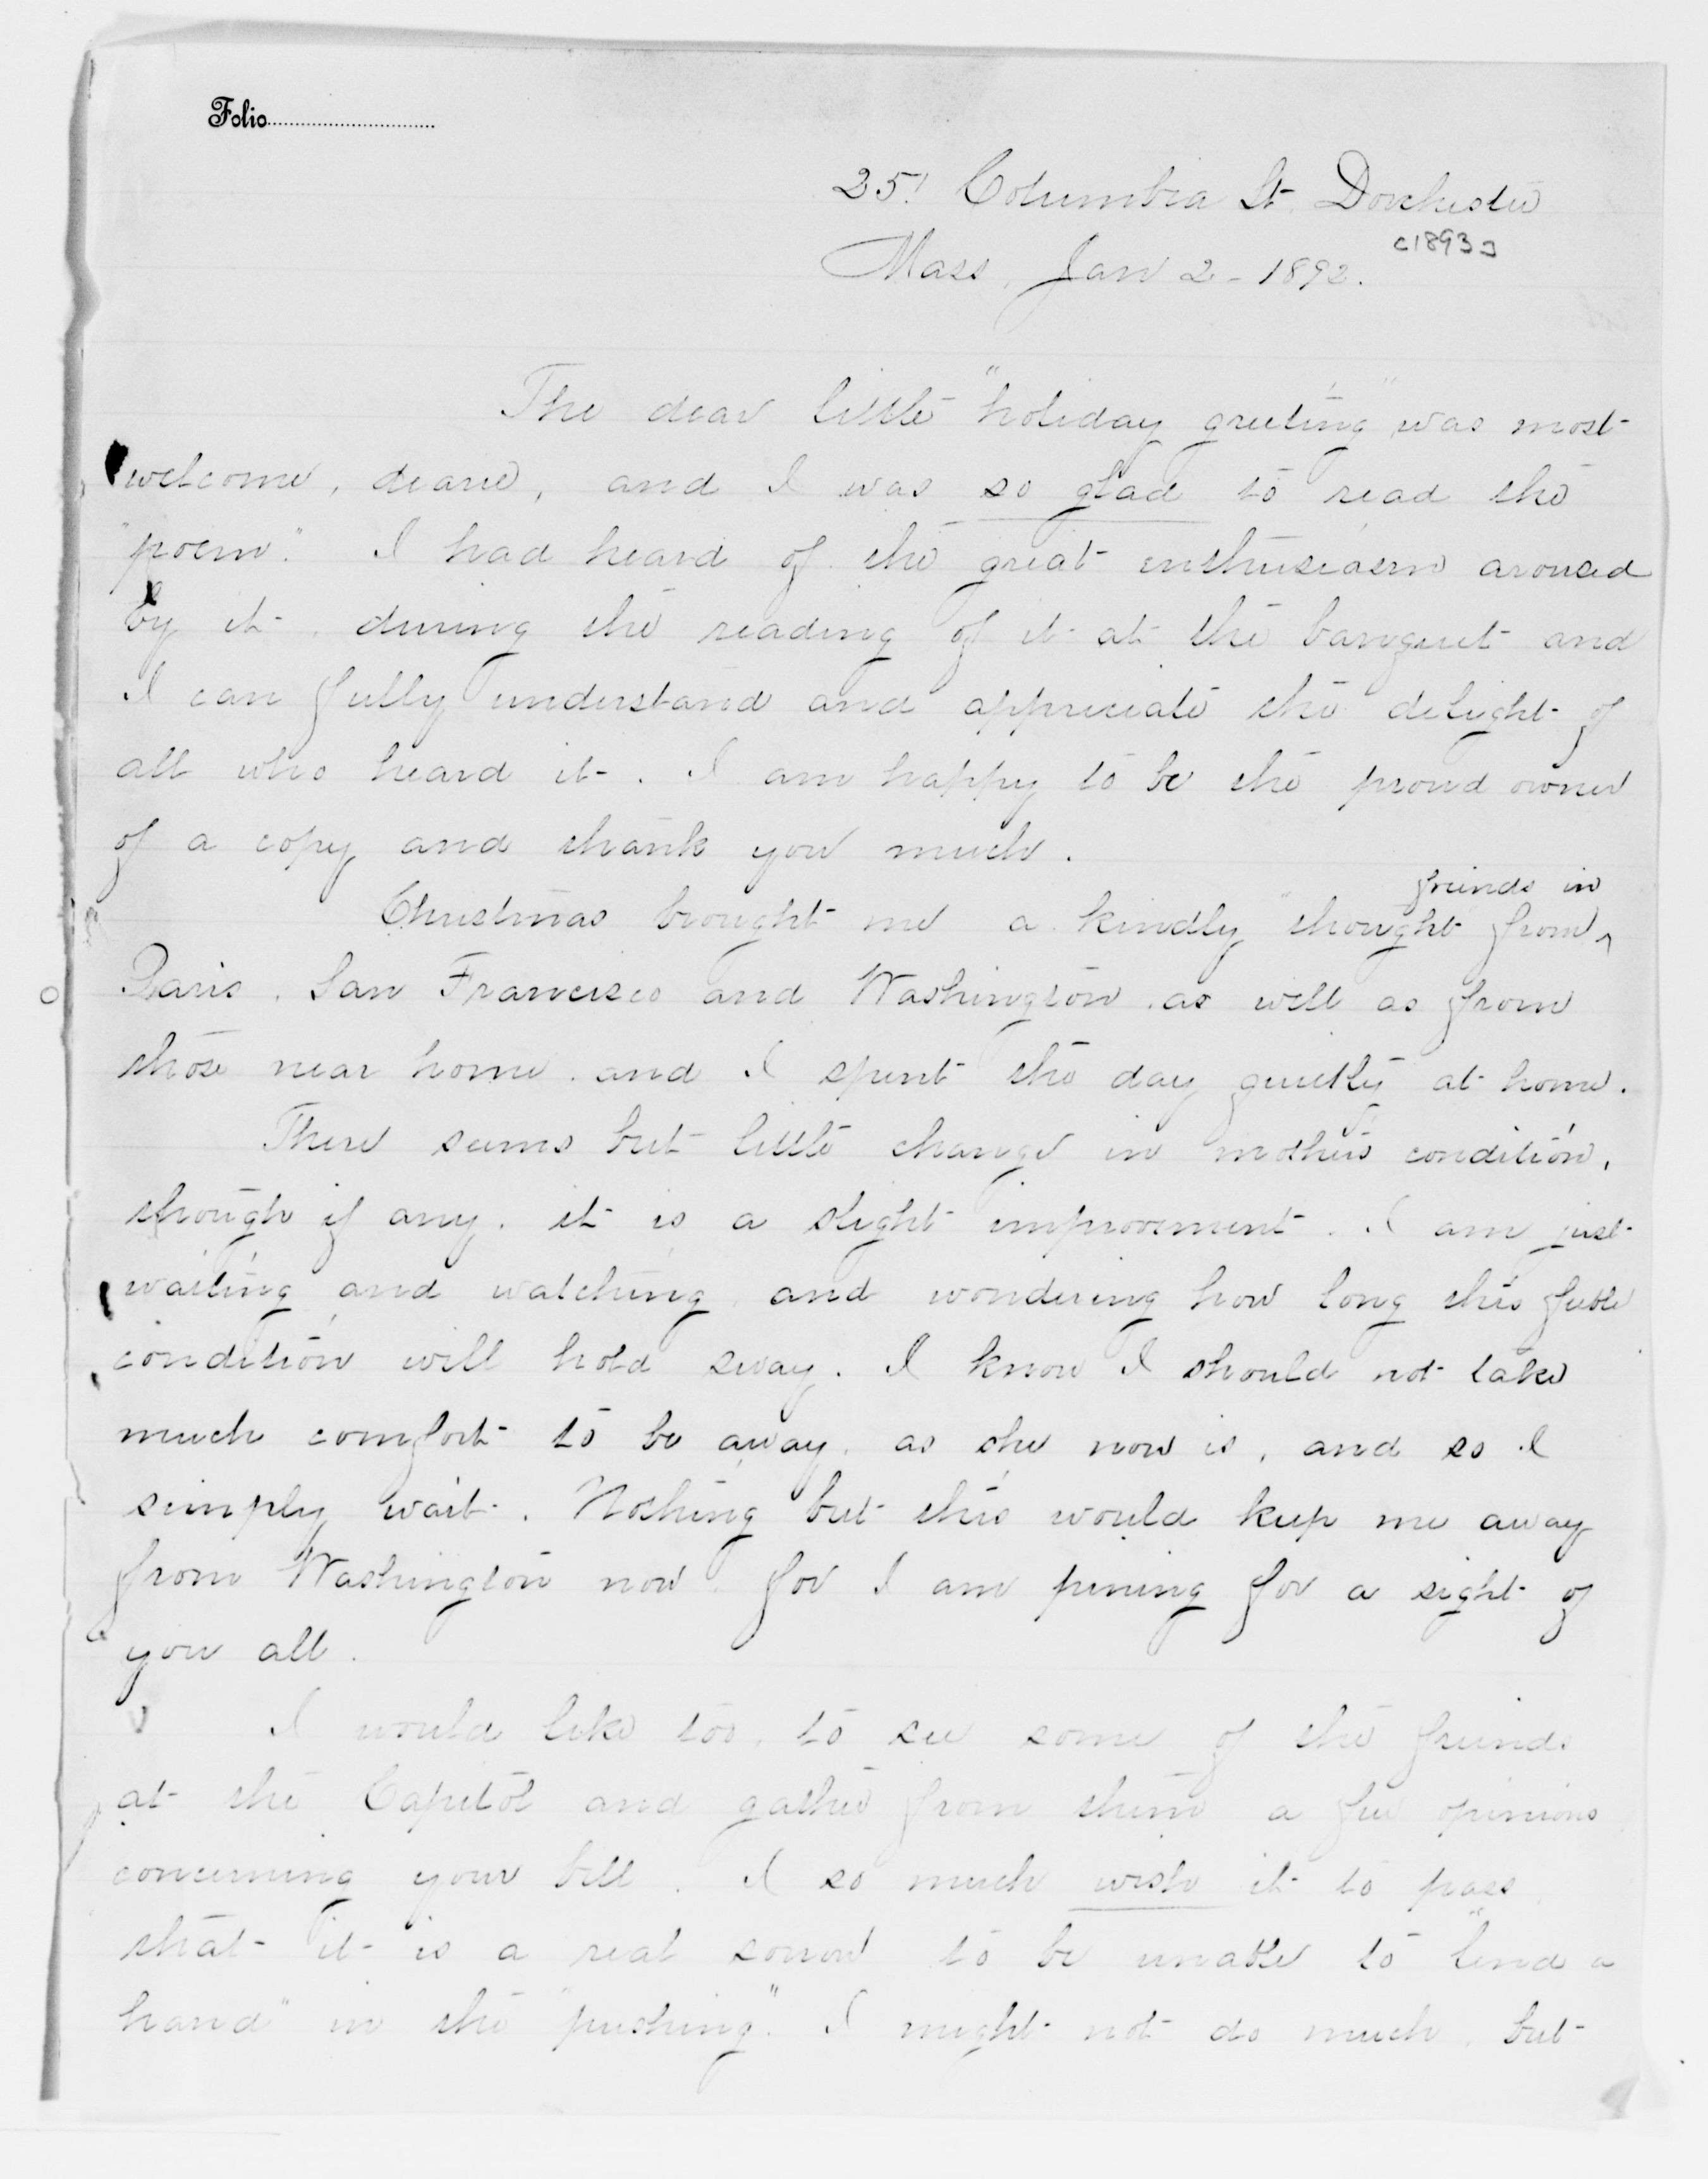 Folio
25! Columbia St. Dorchester
[1893]
Mass, Jan 2 - 1892.
The dear little "holiday greeting" was most
welcome, dearie, and I was so glad to read the
"poem." I had heard of the great enthusiasm aroused
by it, during the reading of it at the banquet and
I can fully understand and appreciate the delight of
all who heard it. I am happy to be the proud owner
of a copy and thank you much.
friends in
Christmas brought me a kindly "thought" from ^
Paris, San Francisco and Washington, as well as from
those near home, and I spent the day quietly at home.
There seems but little change in mother's condition,
though if any, it is a slight improvement. I am just
waiting and watching, and wondering how long this feeble
condition will hold sway. I know I should not take
much comfort to be away, as she now is, and so I
simply wait. Nothing but this would keep me away
from Washington now, for I am pining for a sight of
you all.
I would like too, to see some of the friends
at the Capitol and gather from them a few opinions
concerning your bill. I so much wish it to pass,
that it is a real sorrow to be unable to "lend a
hand" in the "pushing." I might not do much, but